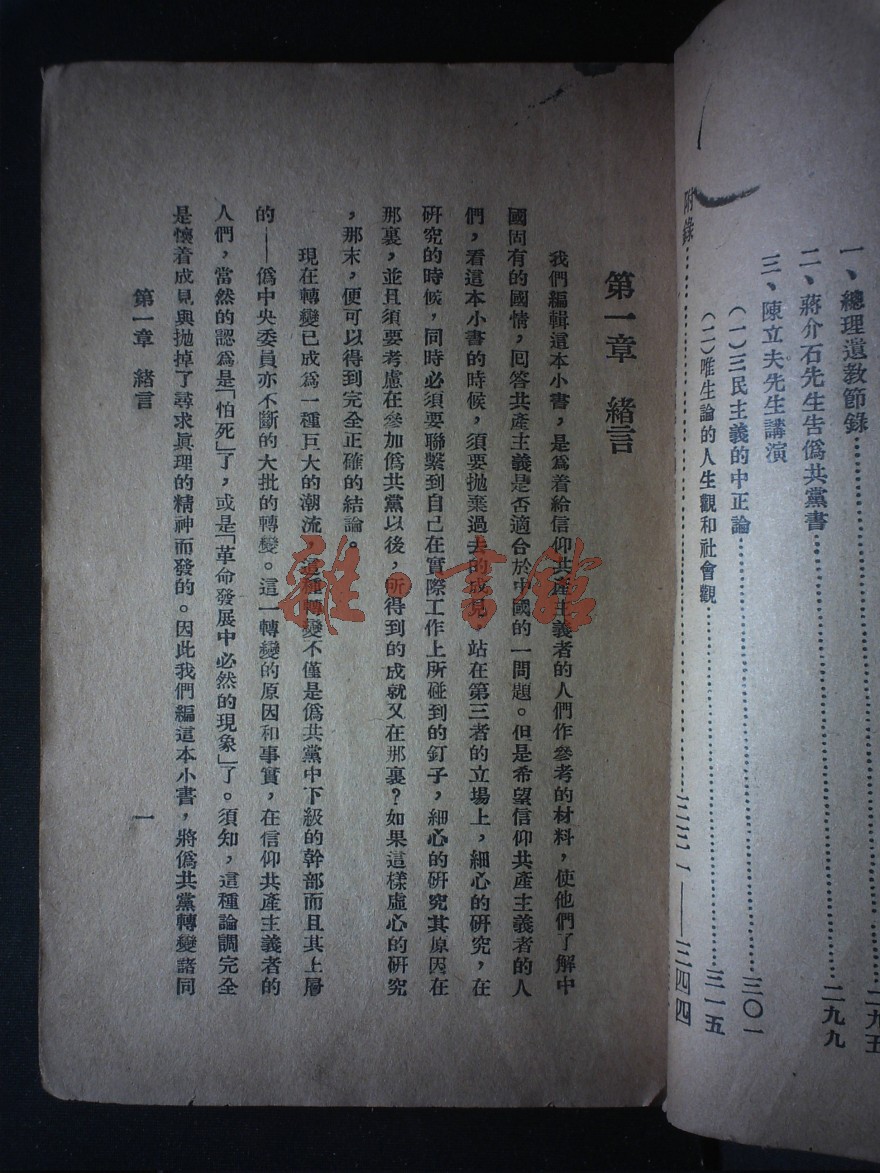 一、總理遺教節錄……二九五
二、蔣介石先生告僞共黨書……二九九
三、陳立夫先生講演
(一)三民主義的中正論……三〇一
(二)唯生論的人生觀和社會觀……三一五
附錄……三三一——三四四
第一章 緒言
我們編輯這本小書,是爲着給信仰共產主義者的人們作參考的材料,使他們了解中
國固有的國情,回答共產主義是否適合於中國的一問題。但是希望信仰共產主義者的人
們,看這本小書的時候,須要拋棄過去的成見,站在第三者的立場上,細心的研究,在
研究的時候,同時必須要聯繫到自己在實際工作上所碰到的釘子,細心的研究其原因在
那裏,並且須要考慮在參加僞共黨以後,所得到的成就又在那裏?如果這樣虛心的研究
,那末,便可以得到完全正確的結論。
現在轉變已成爲一種巨大的潮流,這種轉變不僅是僞共黨中下級的幹部而且其上層
的——僞中央委員亦不斷的大批的轉變。這一轉變的原因和事實,在信仰共產主義者的
人們,當然的認爲是「怕死」了,或是「革命發展中必然的現象」了。須知,這種論調完全
是懷着成見與拋掉了尋求眞理的精神而發的。因此我們編這本小書,將僞共黨轉變諸同
第一章 緒言
一
雜·書館